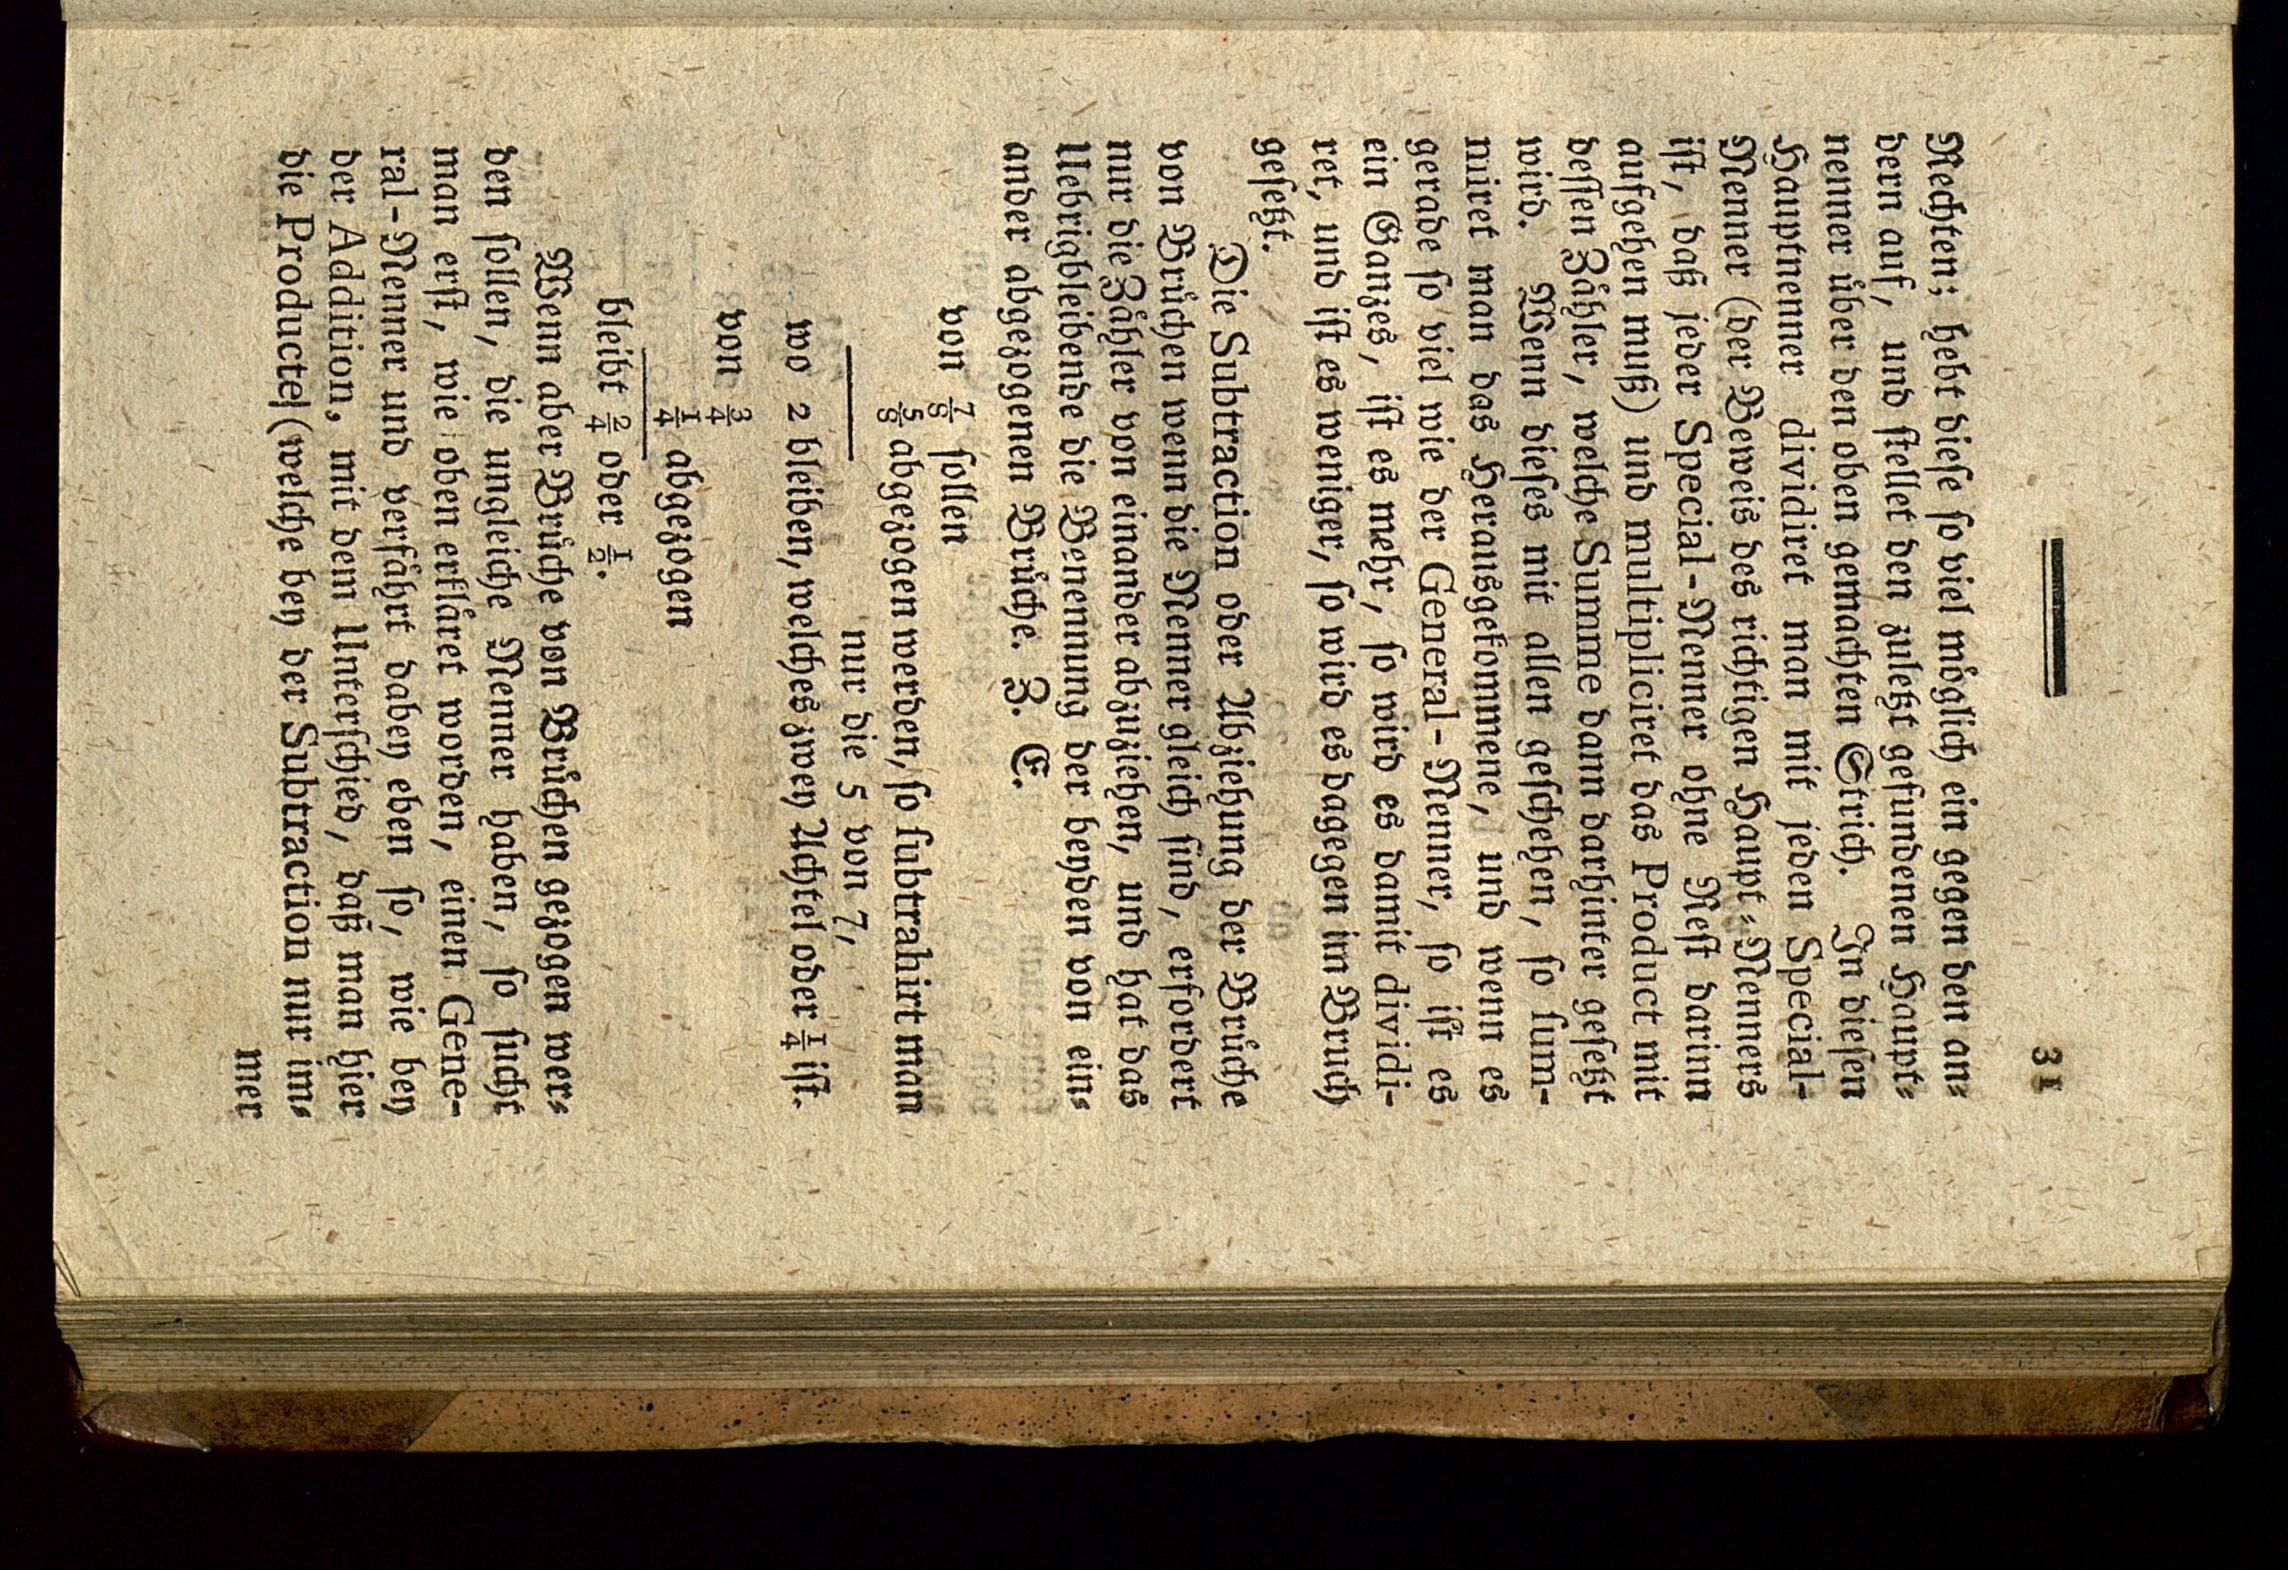 31
Rechten; hebt dieſe ſo viel moͤglich ein gegen den an⸗
dern auf, und ſtellet den zuletzt gefundenen Haupt⸗
nenner uͤber den oben gemachten Strich. In dieſen
Hauptnenner dividiret man mit jeden Special-
Nenner (der Beweis des richtigen Haupt⸗Nenners
iſt, daß jeder Special-Nenner ohne Reſt darinn
aufgehen muß) und multipliciret das Product mit
deſſen Zaͤhler, welche Summe dann darhinter geſetzt
wird. Wenn dieſes mit allen geſchehen, ſo ſum-
miret man das Herausgekommene, und wenn es
gerade ſo viel wie der General-Nenner, ſo iſt es
ein Ganzes, iſt es mehr, ſo wird es damit dividi-
ret, und iſt es weniger, ſo wird es dagegen im Bruch
geſetzt.
Die Subtraction oder Abziehung der Bruͤche
von Bruͤchen wenn die Nenner gleich ſind, erfordert
nur die Zaͤhler von einander abzuziehen, und hat das
Uebrigbleibende die Benennung der beyden von ein⸗
ander abgezogenen Bruͤche. Z. E.
von 7/8 ſollen
5/8 abgezogen werden, ſo ſubtrahirt man
nur die 5 von 7,
wo 2 bleiben, welches zwey Achtel oder 1/4 iſt.
von 3/4
1/4 abgezogen
bleibt 2/4 oder 1/2.
Wenn aber Bruͤche von Bruͤchen gezogen wer⸗
den ſollen, die ungleiche Nenner haben, ſo ſucht
man erſt, wie oben erklaͤret worden, einen Gene-
ral-Nenner und verfaͤhrt dabey eben ſo, wie bey
der Addition, mit dem Unterſchied, daß man hier
die Producte (welche bey der Subtraction nur im⸗
mer